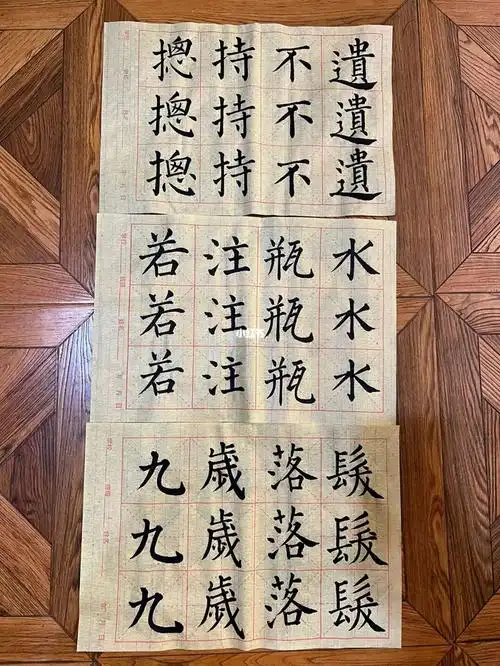 摠持不遺
摠持不遺
摠持不遺
若注瓶水
若注瓶水
小红书
若注瓶水
九歲落髮
九歲落髮
九歲落髮